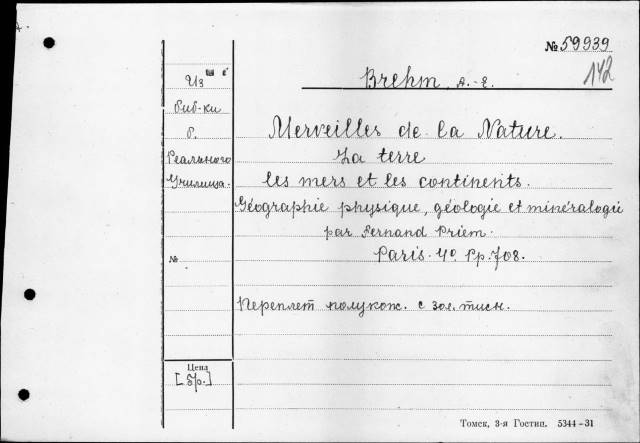 № 59939
142
Brehm, A.-E.
Из
биб-ки
б.
Реального
Училища.
№
Merveilles de la Nature.
La terre
les mers et les continents.
Géographie physique, géologie et minéralogie
par Fernand Priem.
Paris. 4º. Pp. 708.
Переплет полукож. с зол. тисн.
Цена
Томск, 3-я Гостип. 5344—31